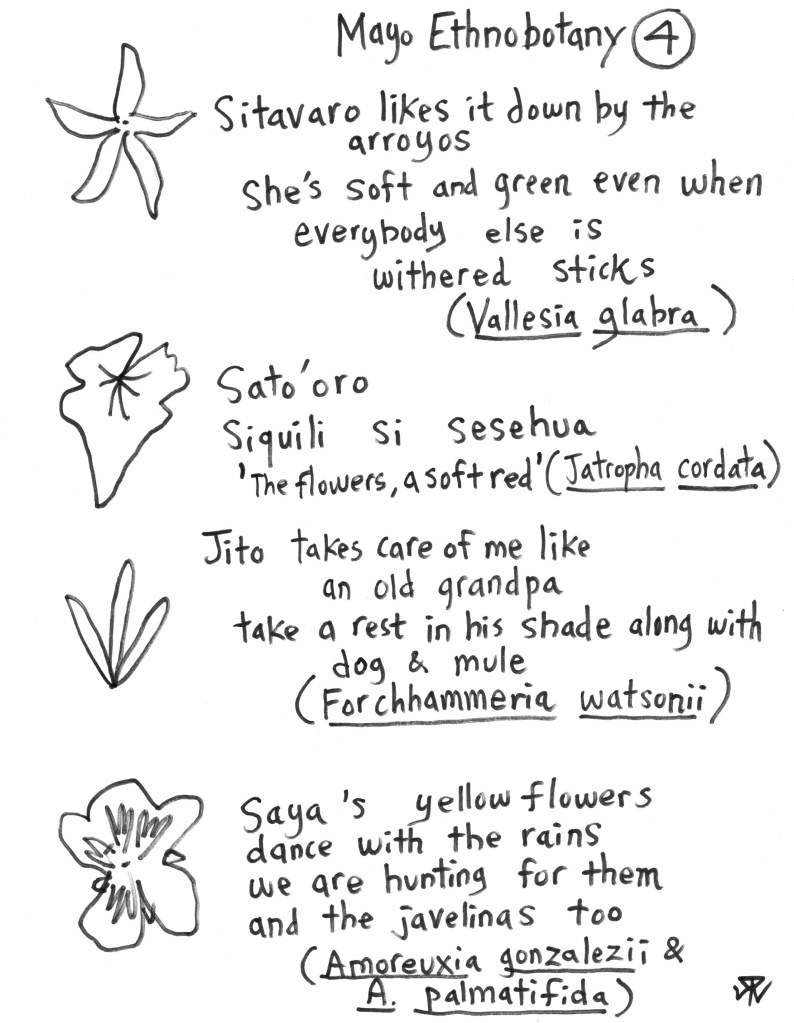 Mayo Ethnobotany 4
Sitavaro likes it down by the
arroyos
She's soft and green even when
everybody else is
withered sticks
(Vallesia glabra)
Sato'oro
Siquili si sesehua
'The flowers, a soft red' (Jatropha cordata)
Jito takes care of me like
an old grandpa
take a rest in his shade along with
dog & mule
(Forchhammeria watsonii)
Saya's yellow flowers
dance with the rains
we are hunting for them
and the javelinas too
(Amoreuxia gonzalezii &
A. palmatifida)